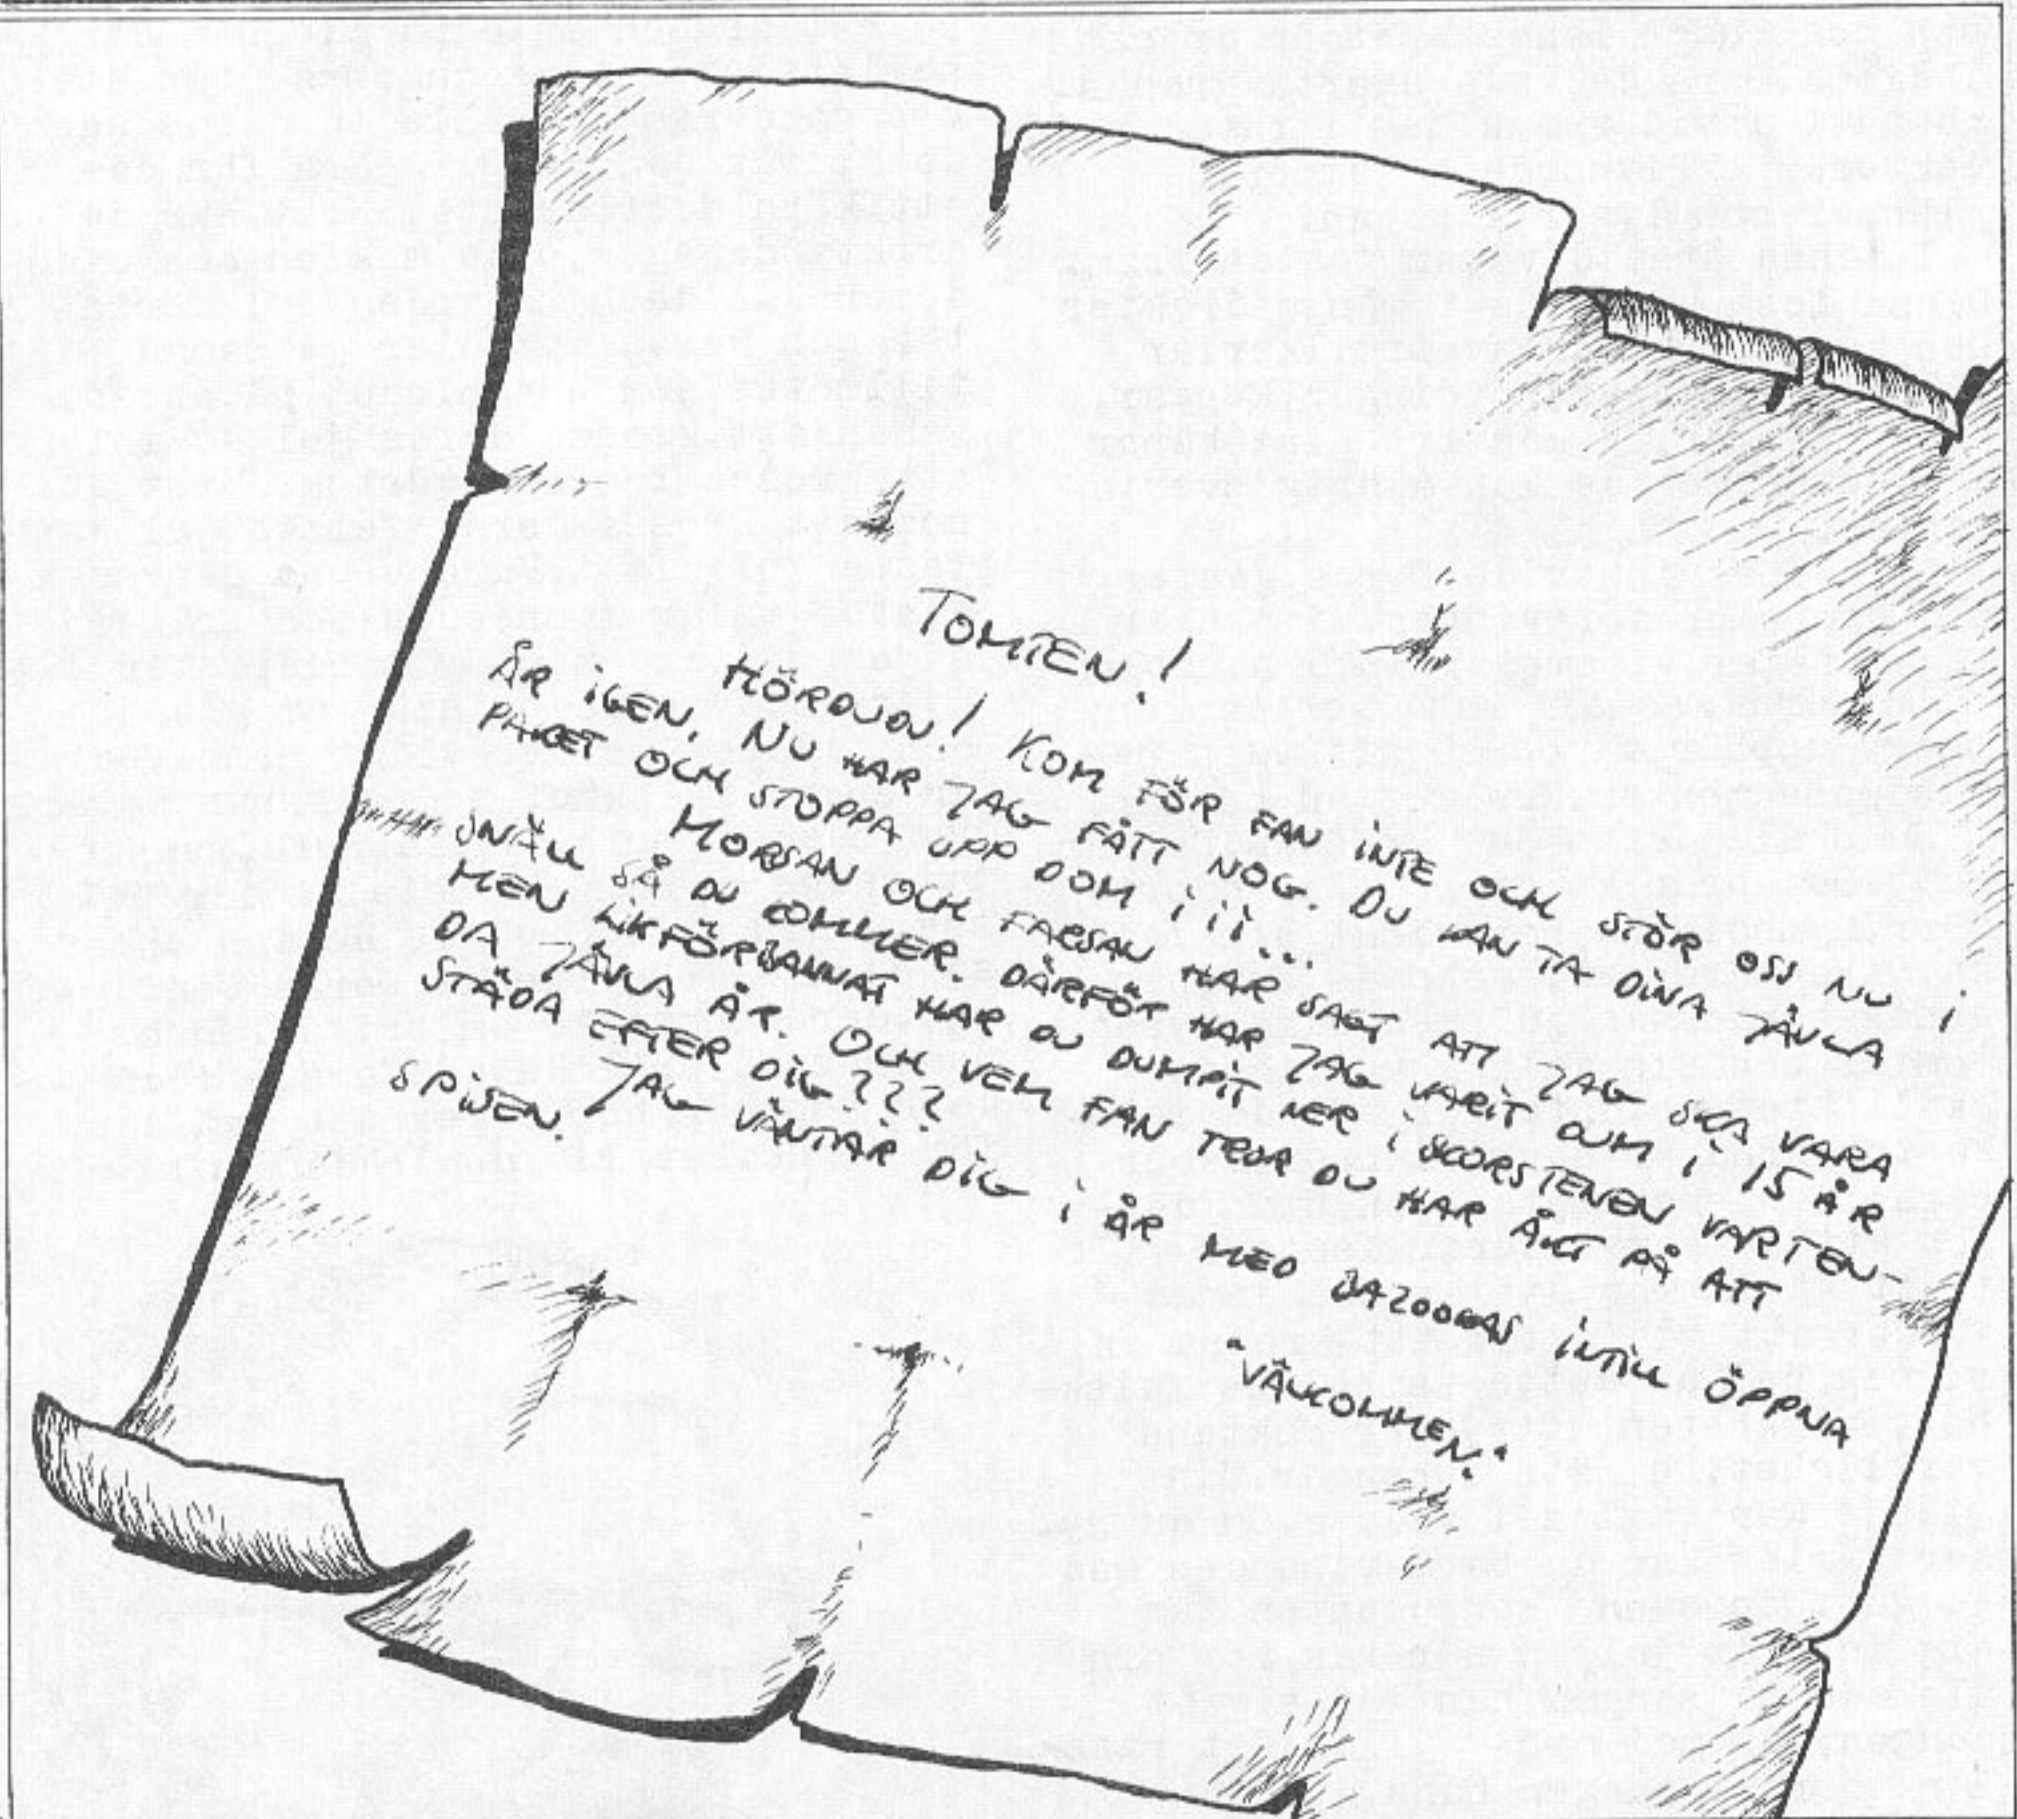 TOMTEN!
HÖRDUDU! KOM FÖR FAN INTE OCH STÖR OSS NU I
ÅR IGEN. NU HAR JAG FÅTT NOG. DU KAN TA DINA JÄVLA
PAKET OCH STOPPA UPP DOM I II...
MORSAN OCH FARSAN HAR SAGT ATT JAG SKA VARA
SNÄLL SÅ DU KOMMER. DÄRFÖR HAR JAG VARIT DUM I 15 ÅR
MEN LIKFÖRBANNAT HAR DU DUMPIT NER I SKORSTENEN VARTEN-
DA JÄVLA ÅR. OCH VEM FAN TROR DU HAR ÅKT PÅ ATT
STÄDA EFTER DIG???
JAG VÄNTAR DIG I ÅR MED BAZOOKAS INTILL ÖPPNA
SPISEN.
"VÄLKOMMEN."